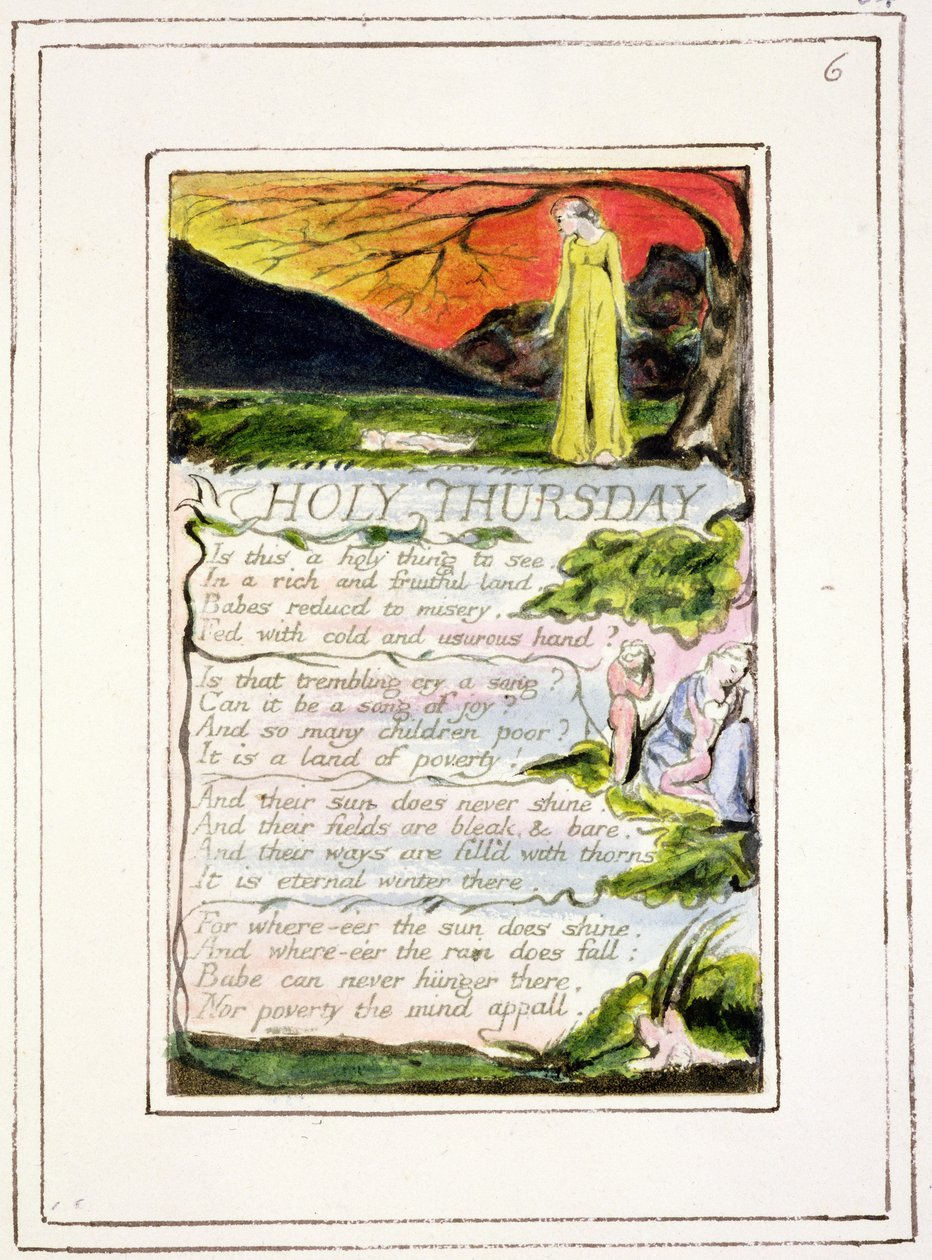 6
HOLY THURSDAY
Is this a holy thing to see.
In a rich and fruitful land.
Babes reducd to misery.
Fed with cold and usurous hand?
Is that trembling cry a song?
Can it be a song of joy?
And so many children poor?
It is a land of poverty!
And their sun does never shine.
And their fields are bleak & bare.
And their ways are fill'd with thorns
It is eternal winter there.
For where-e'er the sun does shine.
And where-e'er the rain does fall:
Babe can never hunger there,
Nor poverty the mind appall.